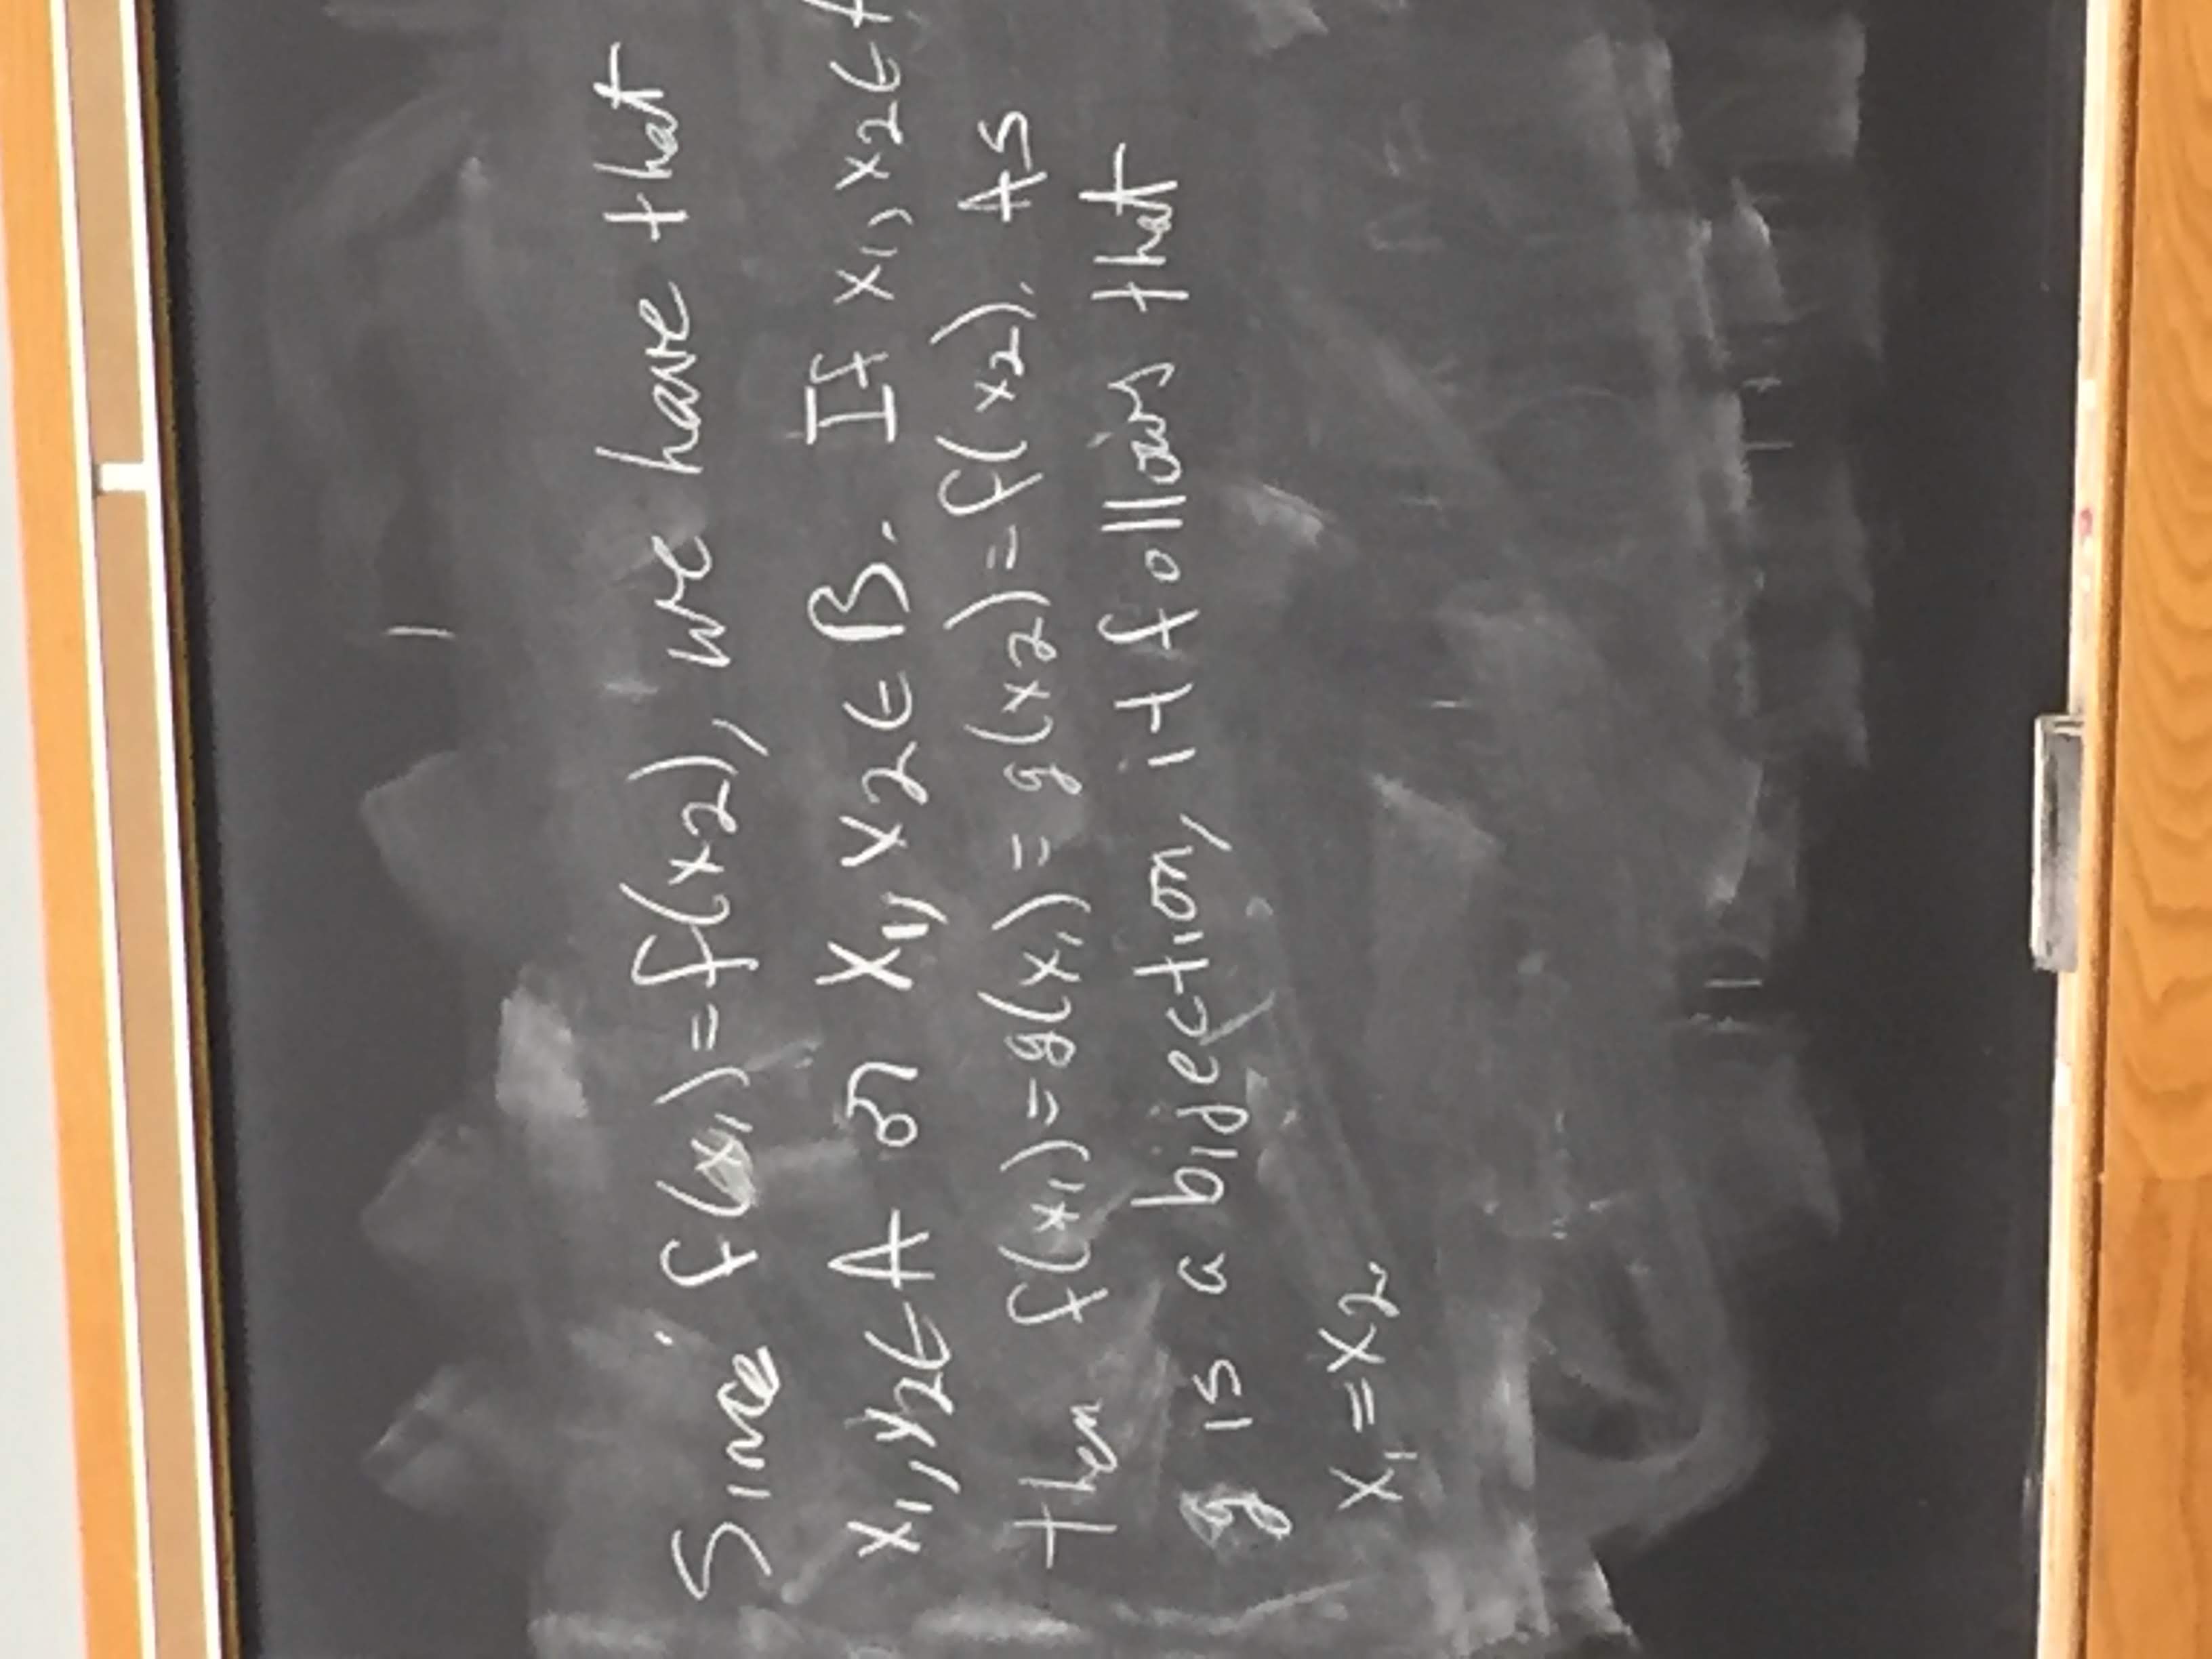 Since f(x₁)=f(x₂), we have that
x₁,x₂∈A or x₁,x₂∈B. If x₁,x₂∈A
then f(x₁)=g(x₁)=g(x₂)=f(x₂). As
g is a bijection, it follows that
x₁=x₂.